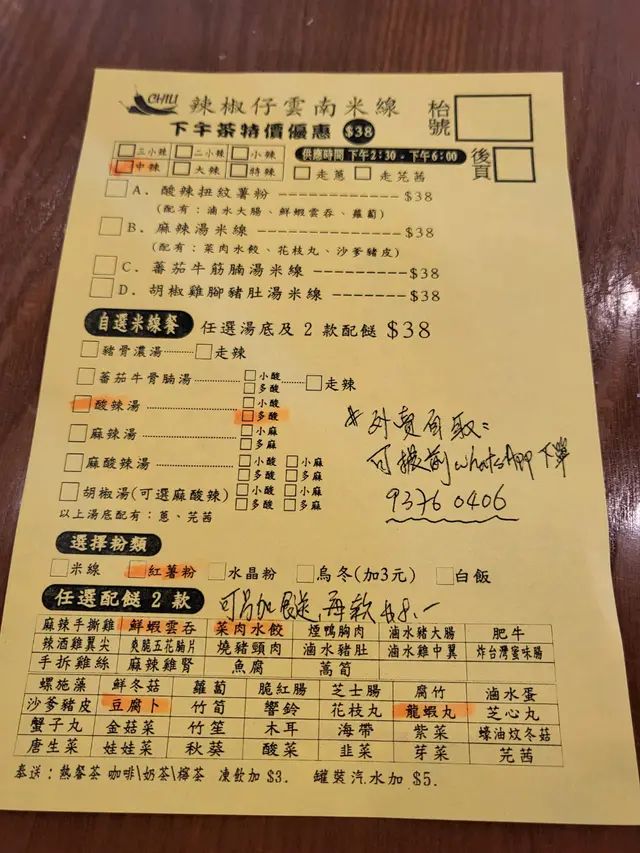 CHILI 辣椒仔雲南米線 枱號
下午茶特價優惠 $38
□三小辣 □二小辣 □小辣 供應時間 下午2:30 - 下午6:00 後頁
□中辣 □大辣 □特辣 □走蔥 □走芫茜
□A. 酸辣扭紋薯粉 -------------- $38
(配有：滷水大腸、鮮蝦雲吞、蘿蔔)
□B. 麻辣湯米線 ---------------- $38
(配有：菜肉水餃、花枝丸、沙爹豬皮)
□C. 蕃茄牛筋腩湯米線 --------- $38
□D. 胡椒雞腳豬肚湯米線 -------- $38
自選米線餐 任選湯底及 2 款配餸 $38
□豬骨濃湯 ········ □走辣
□蕃茄牛骨腩湯 ········ □小酸 □多酸 ········ □走辣
□酸辣湯 ········ □小酸 □多酸
□麻辣湯 ········ □小麻 □多麻
□麻酸辣湯 ········ □小酸 □小麻 □多酸 □多麻
□胡椒湯(可選麻酸辣) □小酸 □小麻 □多酸 □多麻
以上湯底配有：蔥、芫茜
* 外賣自取：
可提前 WhatsApp 下單
9376 0406
選擇粉類
□米線 □紅薯粉 □水晶粉 □烏冬(加3元) □白飯
任選配餸 2 款
麻辣手撕雞 鮮蝦雲吞 菜肉水餃 煙鴨胸肉 滷水豬大腸 肥牛
辣酒雞翼尖 爽脆五花腩片 燒豬頸肉 滷水豬肚 滷水雞中翼 炸台灣蜜味腸
手拆雞絲 麻辣雞腎 魚腐 萵筍
螺旋藻 鮮冬菇 蘿蔔 脆紅腸 芝士腸 腐竹 滷水蛋
沙爹豬皮 豆腐卜 竹筍 響鈴 花枝丸 龍蝦丸 芝心丸
蟹子丸 金菇菜 竹笙 木耳 海帶 紫菜 蠔油炆冬菇
唐生菜 娃娃菜 秋葵 酸菜 韭菜 芽菜 芫茜
奉送：熱餐茶 咖啡\奶茶\檸茶 凍飲加 $3. 罐裝汽水加 $5.